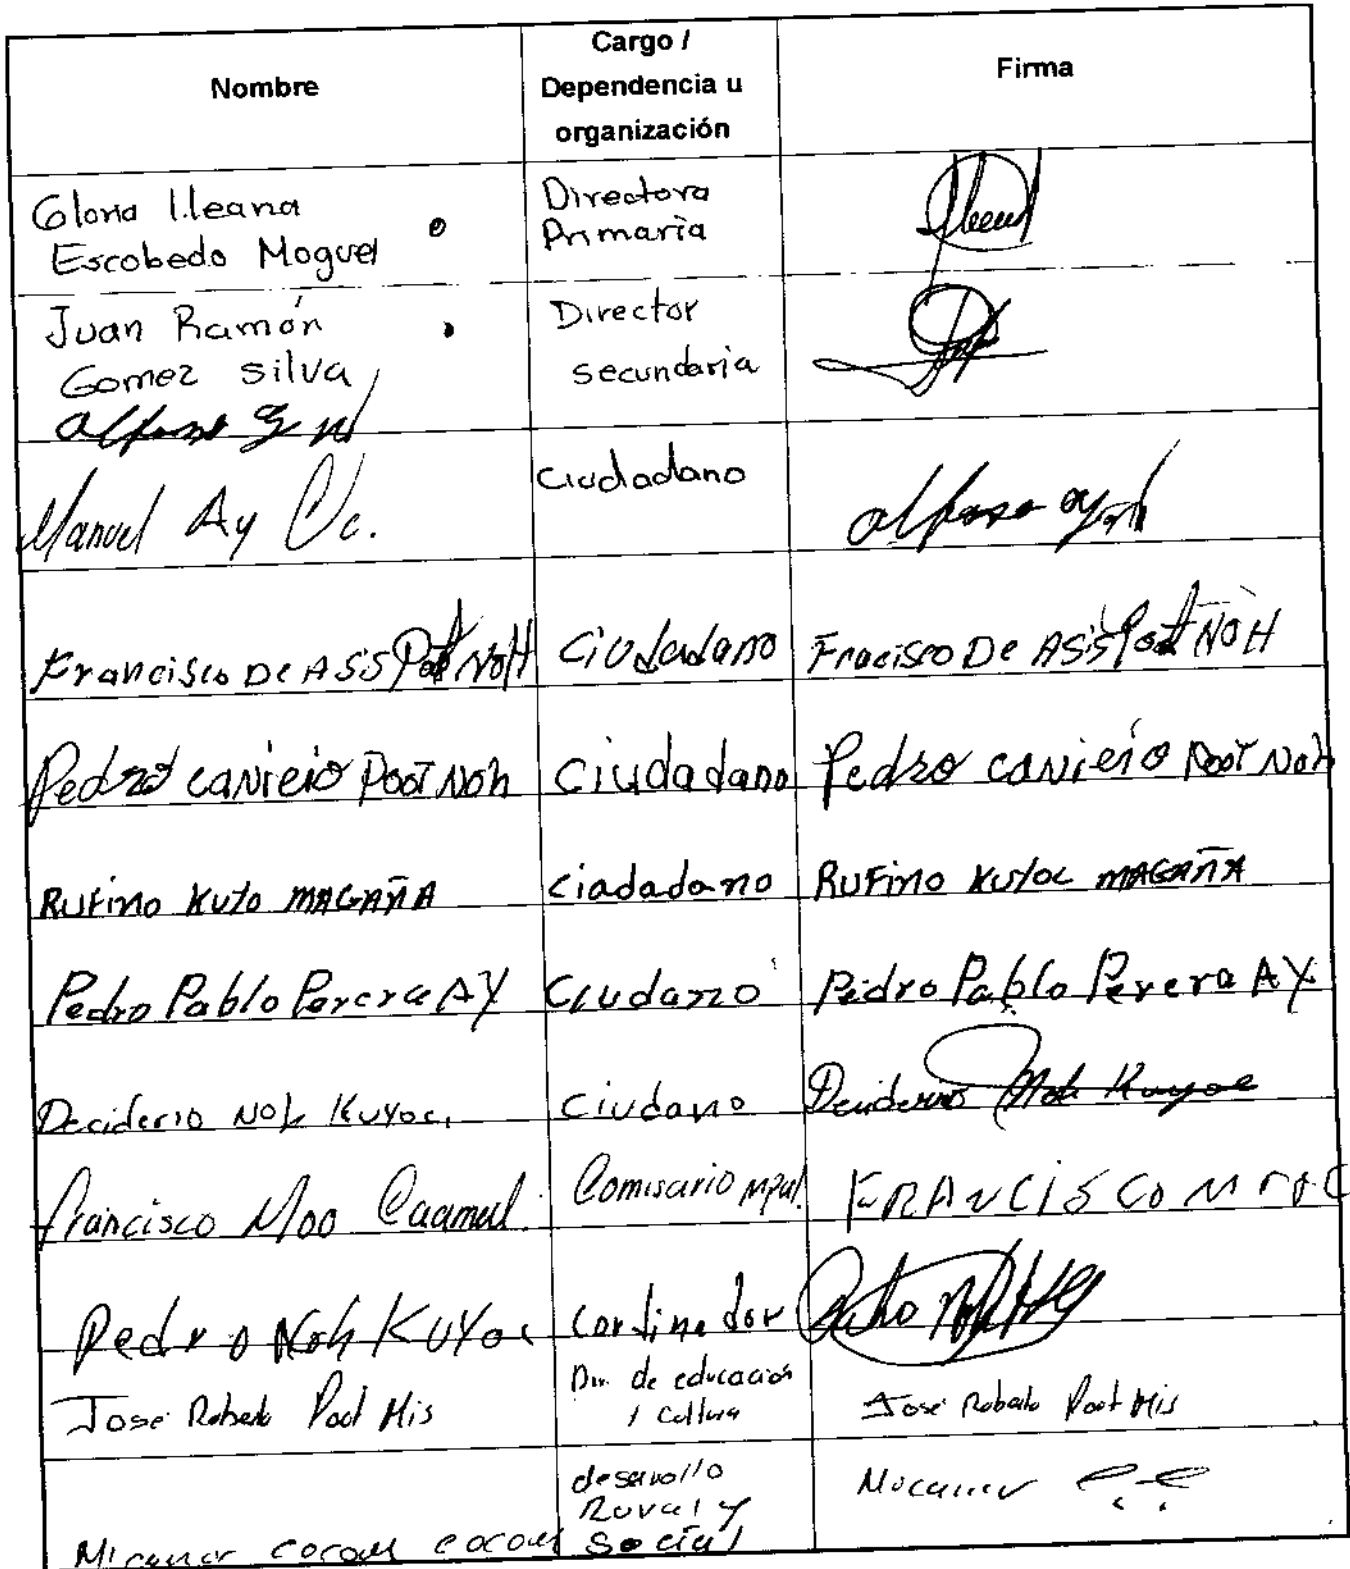 Nombre
Cargo /
Dependencia u
organización
Firma
Gloria Ileana
Escobedo Moguel
Directora
Primaria
Juan Ramón
Gomez Silva
Director
secundaria
Alfonso
Manuel Ay Uc.
Ciudadano
alfonso ay
Francisco De ASS Poot NOH
Ciudadano
Fracisco De ASis Poot NOH
Pedro canicio Poot Noh
Ciudadano
Pedro canicio Poot Noh
RUFino Kuyo MAGAÑA
Ciadadano
RUFino Kuyoc MAGAÑA
Pedro Pablo Perera AY
Ciudano
Pedro Pablo Perera AY
Deciderio NOh Kuyoc
Ciudano
Noh Kuyoc
Francisco Moo Caamal.
Comisario mpal.
FRANCISCO
Pedro Noh KUYoc
Cordinador
José Roberto Poot Mis
Dir. de educación
y Cultura
José Roberto Poot Mis
desarrollo
Rural y
Social